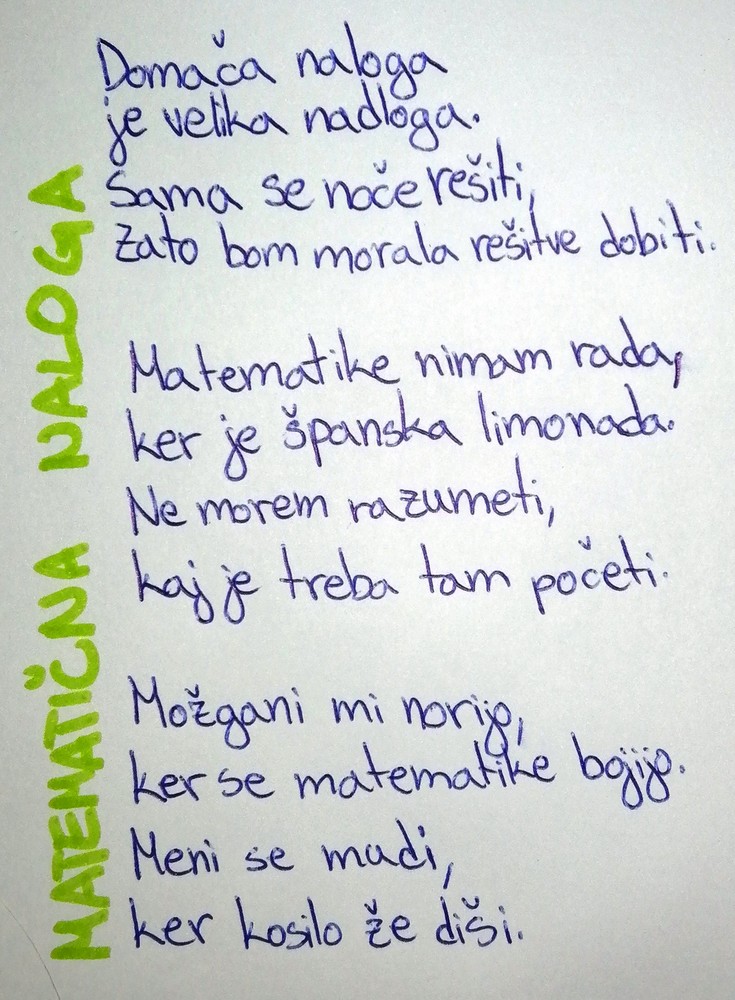 MATEMATIČNA NALOGA
Domača naloga
je velika nadloga.
Sama se noče rešiti,
zato bom morala rešitve dobiti.
Matematike nimam rada,
ker je španska limonada.
Ne morem razumeti,
kaj je treba tam početi.
Možgani mi norijo,
ker se matematike bojijo.
Meni se mudi,
ker kosilo že diši.